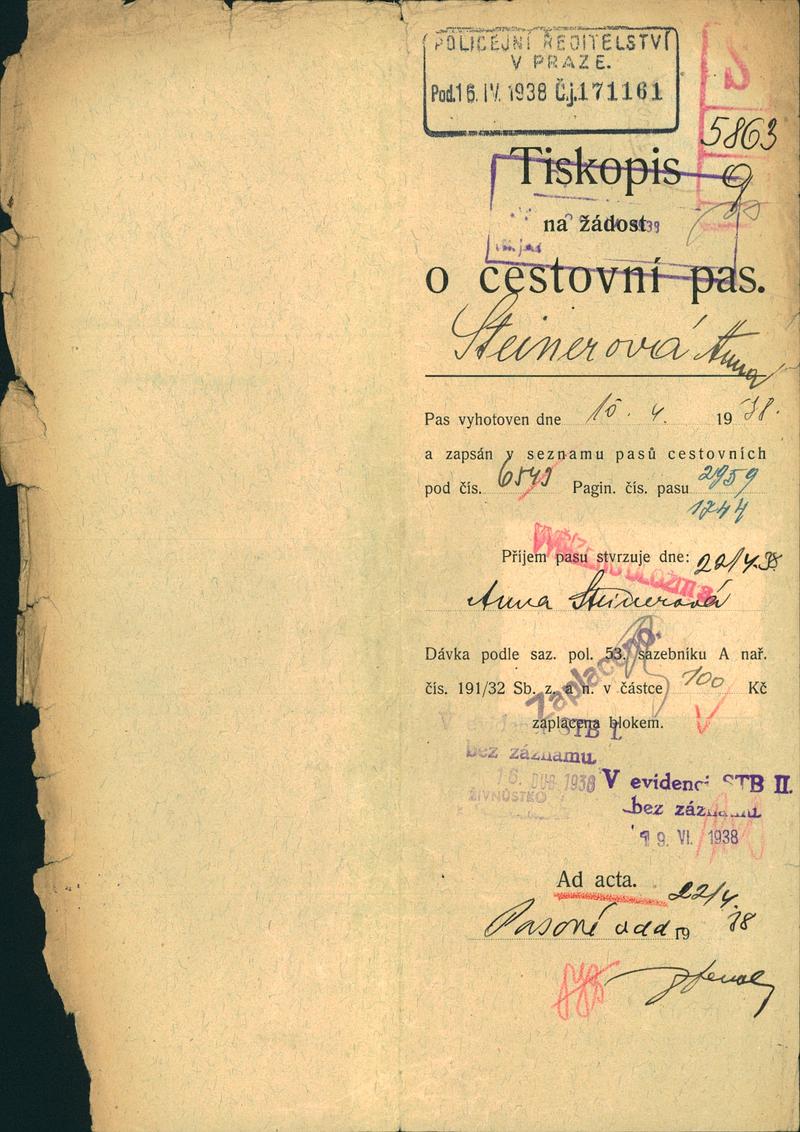 POLICEJNÍ ŘEDITELSTVÍ
V PRAZE.
Pod. 16. IV. 1938 Č.j. 171161
5863
Tiskopis 9
na žádost
o cestovní pas.
Steinerová Anna
Pas vyhotoven dne 15. 4. 1938.
a zapsán v seznamu pasů cestovních
pod čís. 6549 Pagin. čís. pasu 2959
1744
Příjem pasu stvrzuje dne: 22/4.38
Anna Steinerová
Dávka podle saz. pol. 53. sazebníku A nař.
čís. 191/32 Sb. z. a n. v částce 100 Kč
Zaplaceno.
zaplacena blokem.
V evidenci STB I.
bez záznamu.
16. DUB 1938
ŽIVNOSTKO
V evidenci STB II.
bez záznamu.
19. VI. 1938
Ad acta. 22/4.
Pasové odd. 19 38